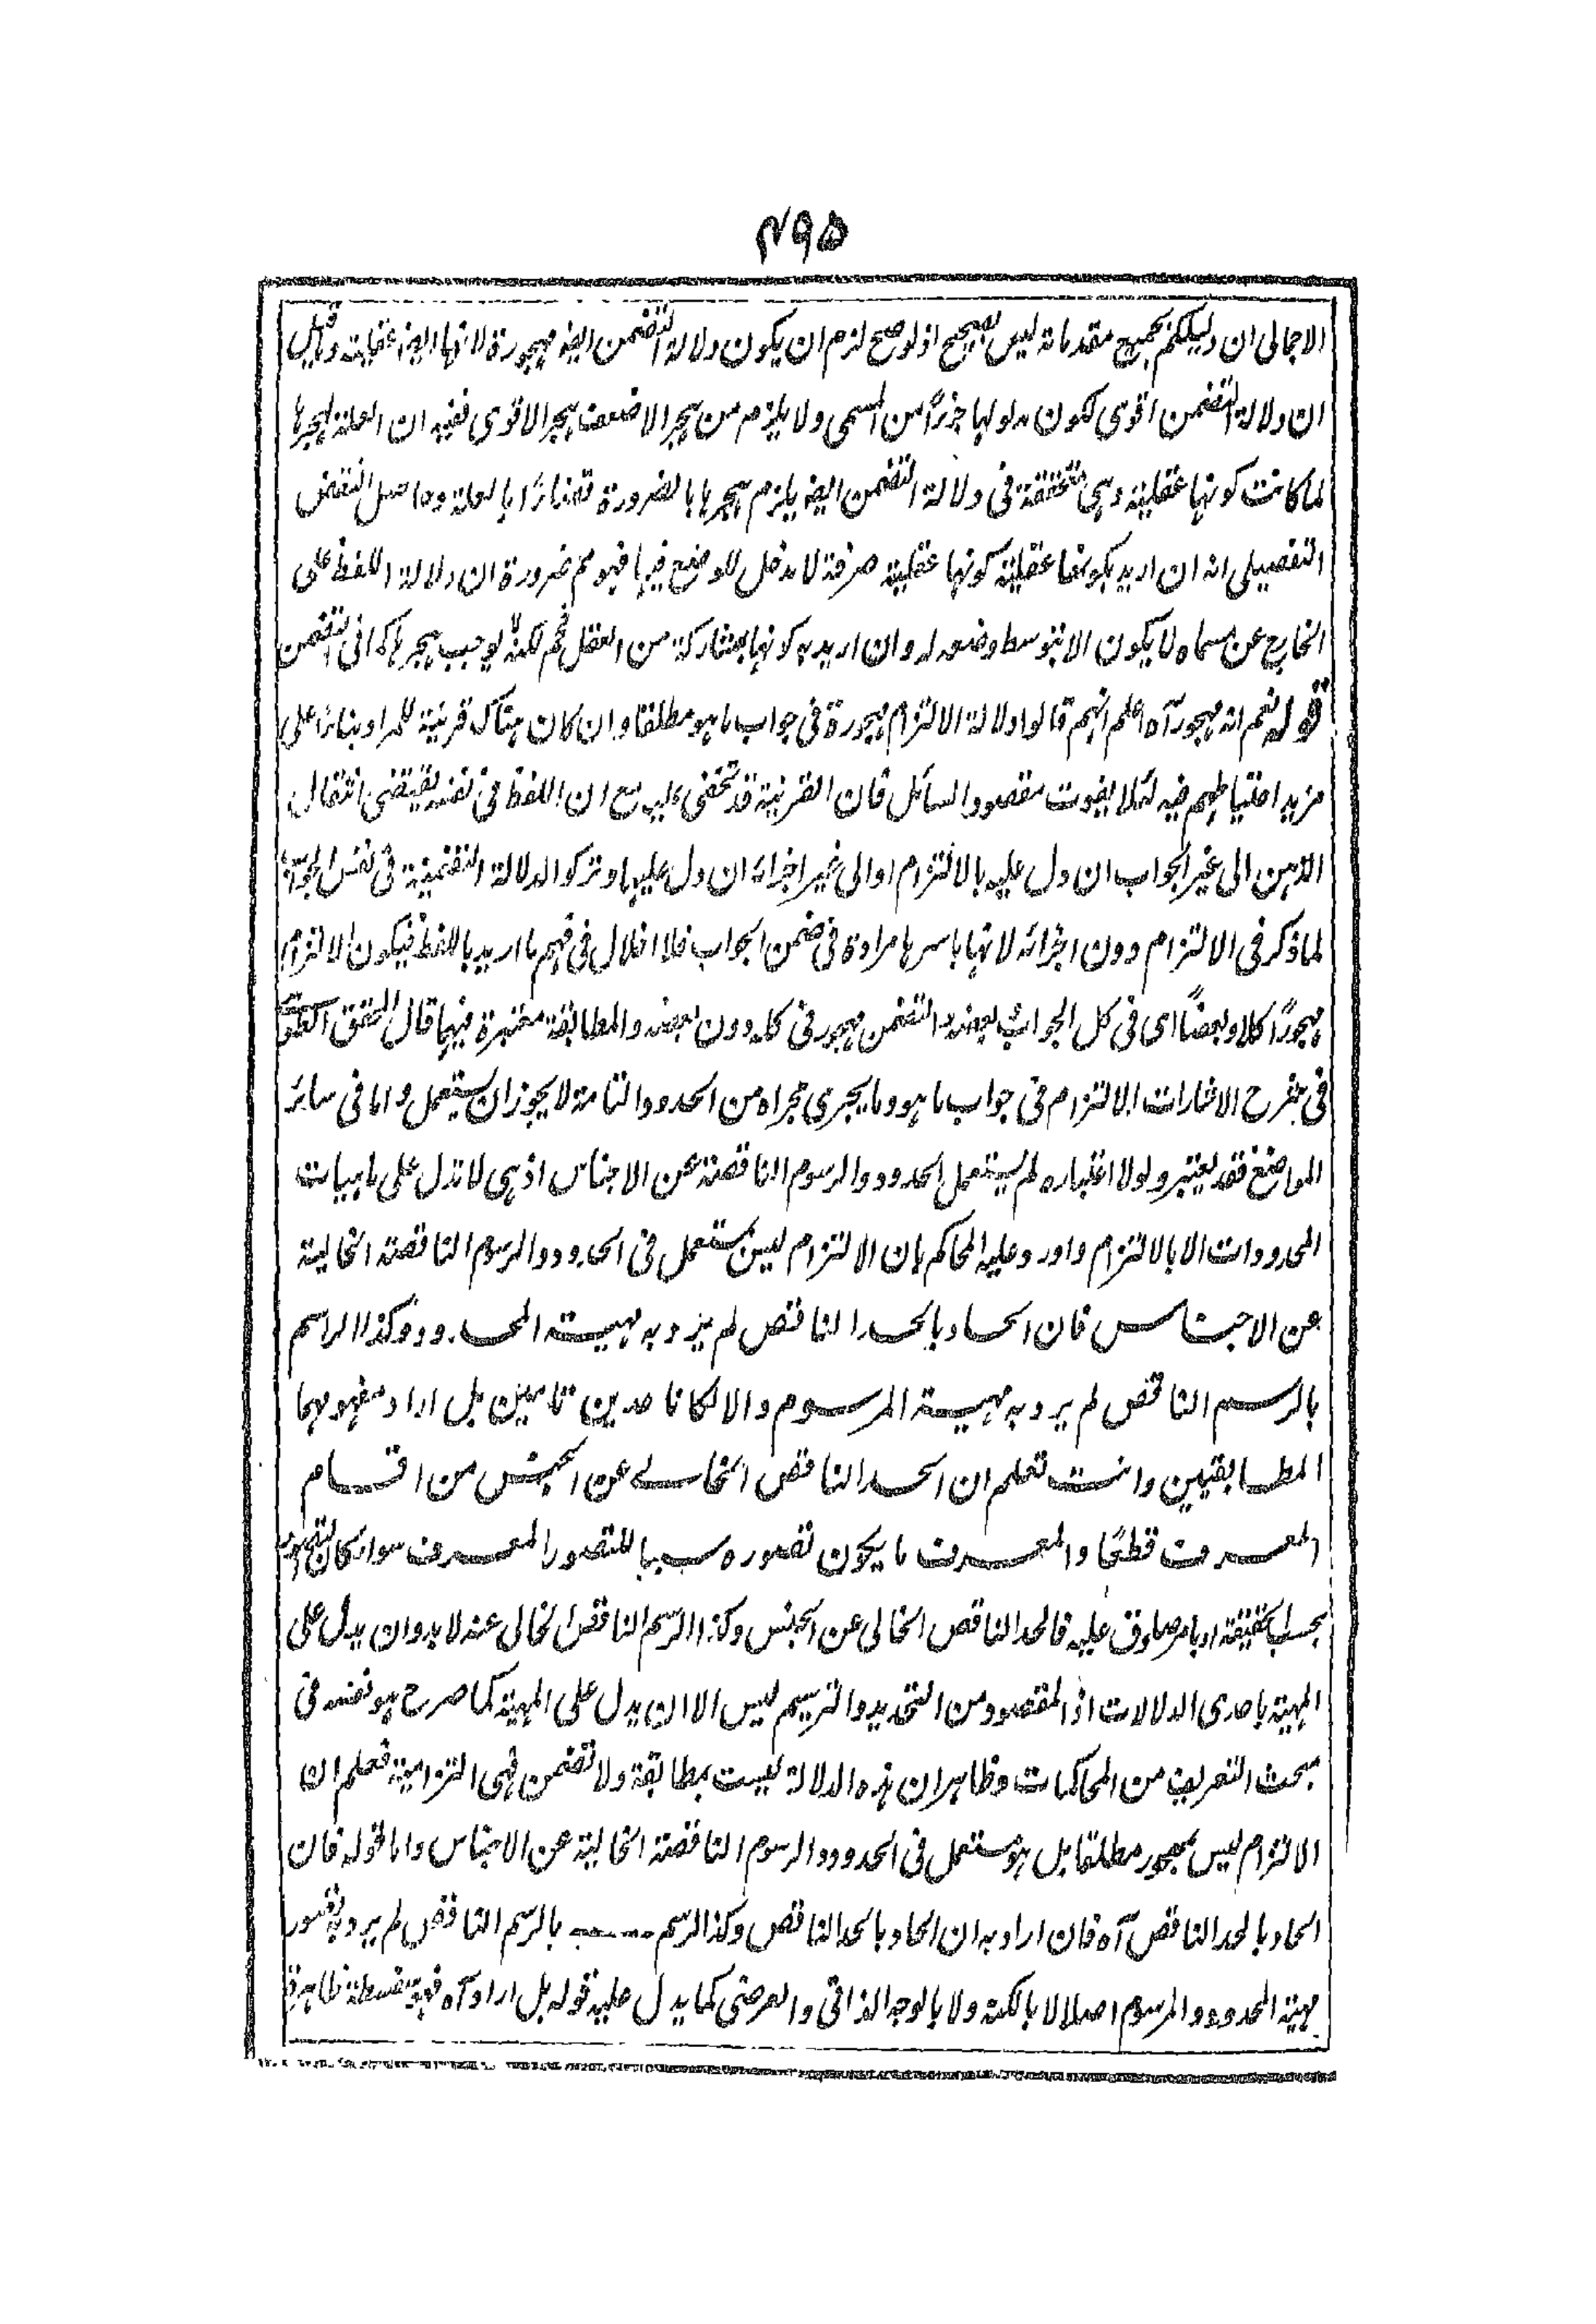 ۴۹۵
الاجمالى ان دليلكم بجميع مقدماته ليس بصحيح اذ لو صح لزم ان يكون دلالة التضمن ايضا مهجورة لانها ايضا عقلية وقيل
ان دلالة التضمن اقوى لكون مدلولها جزءًا من المسمى ولا يلزم من هجر الاضعف هجر الاقوى ففيه ان العلة لهجرها
لما كانت كونها عقلية وهى متحققة فى دلالة التضمن ايضا يلزم هجرها بالضرورة بالعلة وحاصل النقض
التفصيلى انه ان اريد بكونها عقلية كونها عقلية صرفة لا مدخل للوضع فيها فهو مم ضرورة ان دلالة اللفظ على
الخارج عن مسماه لا يكون الا بتوسط وضعه له وان اريد به كونها بمشاركة من العقل فهم لكنه لا يوجب هجرها كما فى التضمن
قوله نعم انه مهجور آه اعلم انهم قالوا دلالة الالتزام مهجورة فى جواب ما هو مطلقا وان كان هناك قرينة للمراد بناءً على
مزيد احتياطهم فيه لئلا يفوت مقصود السائل فان القرينة قد تخفى عليه مع ان اللفظ فى نفسه يقتضى انتقال
الذهن الى غير الجواب ان دل عليه بالالتزام او الى غير اجزائه ان دل عليها وتركوا الدلالة التضمنية فى نفس الجواب
لما ذكر فى الالتزام دون اجزائه لانها باسرها مرادة فى ضمن الجواب فلا اخلال فى فهم ما اريد باللفظ فيكون الالتزام
مهجورًا كلا وبعضًا اى فى كل الجواب وبعضه والتضمن مهجور فى كله دون بعضه والمطابقة معتبرة فيهما قال المحقق الطوسى
فى شرح الاشارات الالتزام فى جواب ما هو وما يجرى مجراه من الحدود التامة لا يجوز ان يستعمل واما فى سائر
المواضع فقد يعتبر ولولا اعتباره لم يستعمل الحدود والرسوم الناقصة عن الاجناس اذ هى لا تدل على ماهيات
المحدودات الا بالالتزام واورد عليه المحاكم بان الالتزام ليس مستعمل فى الحدود والرسوم الناقصة الخالية
عن الاجناس فان الحاد بالحد الناقص لم يرد به مهية المحدود وكذا الراسم
بالرسم الناقص لم يرد به مهية المرسوم والا لكانا حدين تامين بل اراد مفهومهما
المطابقيين وانت تعلم ان الحد الناقص الخالى عن الجنس من اقسام
المعرف قطعًا والمعرف ما يكون تصوره سببا للتصور المعرف سواء كان التصور
بحسب الحقيقة او بامر صادق عليه فالحد الناقص الخالى عن الجنس وكذا الرسم الناقص الخالى عنه لا بد وان يدل على
المهية باحدى الدلالات اذ المقصود من التحديد والترسيم ليس الا ان يدل على المهية كما صرح هو نفسه فى
مبحث التعريف من المحاكمات وظاهر ان هذه الدلالة ليست بمطابقة ولا تضمن فهى التزامية فعلم ان
الالتزام ليس بمهجور مطلقا بل هو مستعمل فى الحدود والرسوم الناقصة الخالية عن الاجناس واما قوله فان
الحاد بالحد الناقص آه فان اراد به ان الحاد بالحد الناقص وكذا الرسم بالرسم الناقص لم يرد به تصور
مهية المحدود والمرسوم اصلا لا بالكنه ولا بالوجه الذاتى والعرضى كما يدل عليه قوله بل اراد آه فهو سفسطة ظاهرة